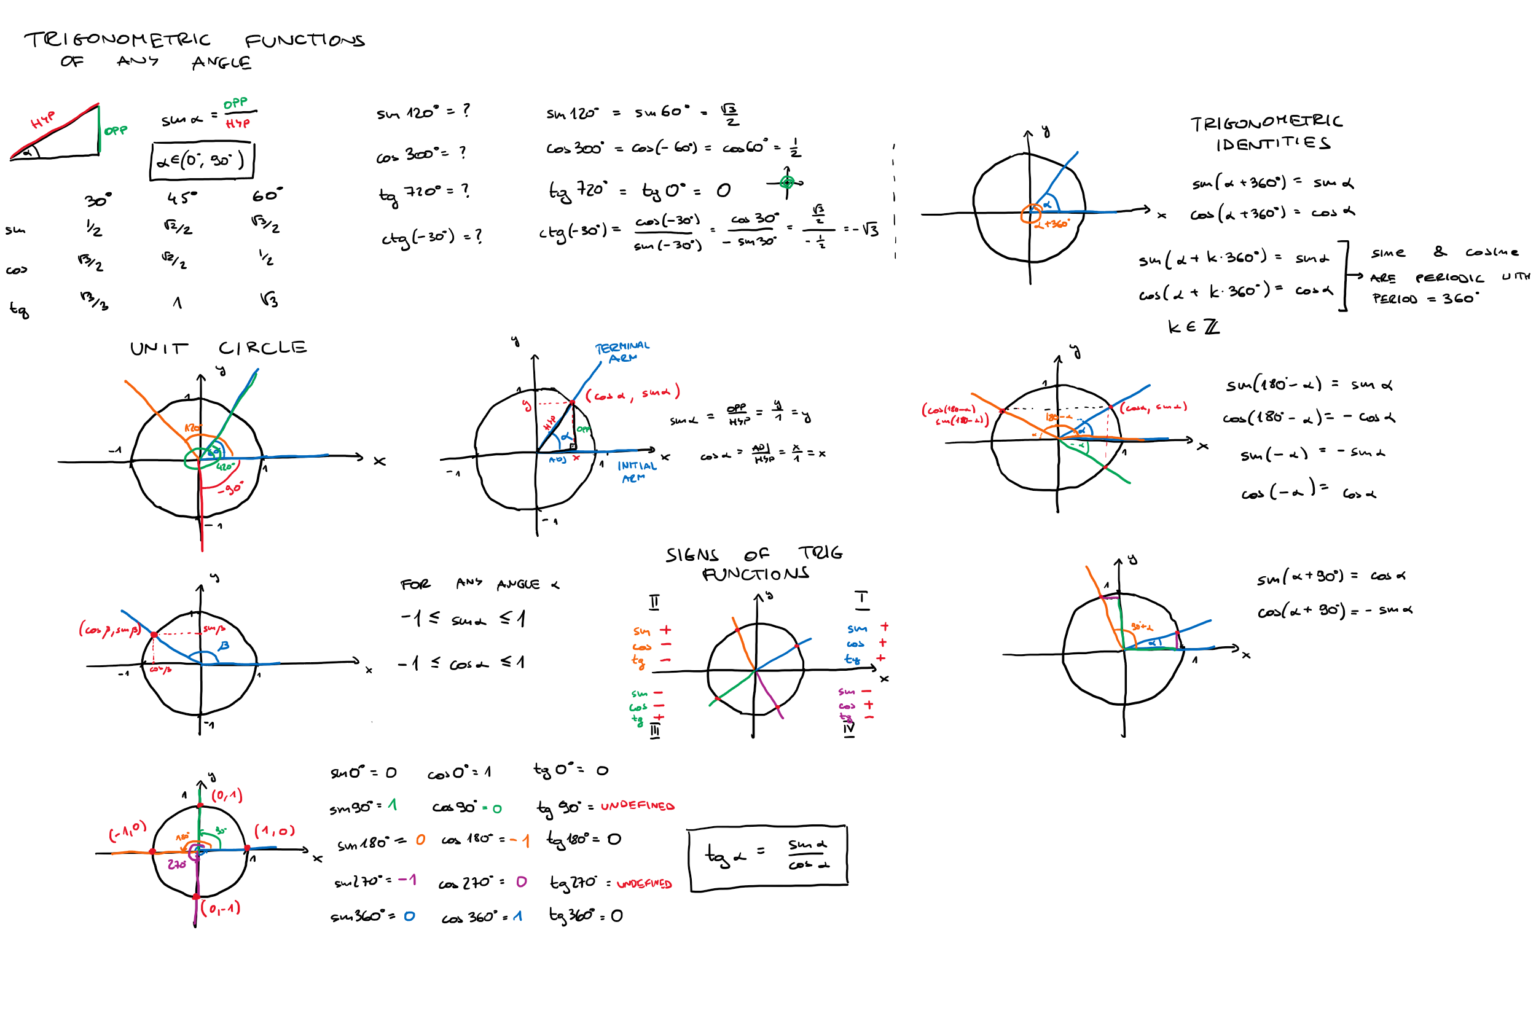 TRIGONOMETRIC FUNCTIONS
OF ANY ANGLE
HYP
OPP
α
sin α = OPP/HYP
α∈(0°, 90°)
30° 45° 60°
sin 1/2 √2/2 √3/2
cos √3/2 √2/2 1/2
tg √3/3 1 √3
sin 120° = ?
cos 300° = ?
tg 720° = ?
ctg(-30°) = ?
sin 120° = sin 60° = √3/2
cos 300° = cos(-60°) = cos 60° = 1/2
tg 720° = tg 0° = 0
ctg(-30°) = cos(-30°)/sin(-30°) = cos 30°/-sin 30° = √3/2/-1/2 = -√3
y
x
α
α+360°
TRIGONOMETRIC
IDENTITIES
sin(α+360°) = sin α
cos(α+360°) = cos α
sin(α + k·360°) = sin α
cos(α + k·360°) = cos α
k ∈ ℤ
sine & cosine
ARE PERIODIC WITH
PERIOD = 360°
UNIT CIRCLE
y
1
-1
120°
60°
420°
1
x
-90°
-1
y
TERMINAL
ARM
1
y
(cos α, sin α)
HYP
OPP
α
ADJ
x
-1
1
x
INITIAL
ARM
-1
sin α = OPP/HYP = y/1 = y
cos α = ADJ/HYP = x/1 = x
y
1
(cos(180-α)
sin(180-α))
(cos α, sin α)
180-α
α
α
-α
-1
1
x
sin(180°-α) = sin α
cos(180°-α) = -cos α
sin(-α) = -sin α
cos(-α) = cos α
y
1
(cos β, sin β)
sin β
β
cos β
-1
1
x
-1
FOR ANY ANGLE α
-1 ≤ sin α ≤ 1
-1 ≤ cos α ≤ 1
SIGNS OF TRIG
FUNCTIONS
II
I
y
sin +
cos -
tg -
sin +
cos +
tg +
x
sin -
cos -
tg +
III
sin -
cos +
tg -
IV
y
1
90+α
α
1
x
sin(α+90°) = cos α
cos(α+90°) = -sin α
y
1
(0,1)
(-1,0)
(1,0)
180°
90°
270°
1
x
(0,-1)
sin 0° = 0 cos 0° = 1 tg 0° = 0
sin 90° = 1 cos 90° = 0 tg 90° = UNDEFINED
sin 180° = 0 cos 180° = -1 tg 180° = 0
sin 270° = -1 cos 270° = 0 tg 270° = UNDEFINED
sin 360° = 0 cos 360° = 1 tg 360° = 0
tg α = sin α/cos α